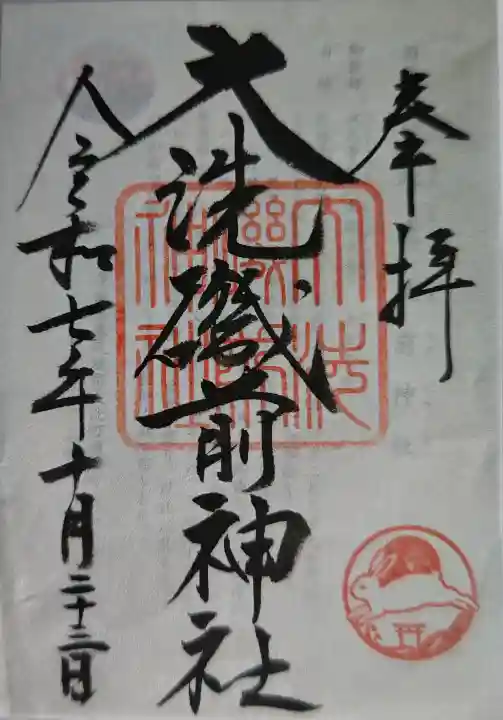 奉拝
大洗磯前神社
令和七年十月二十三日
大洗
磯前
神社